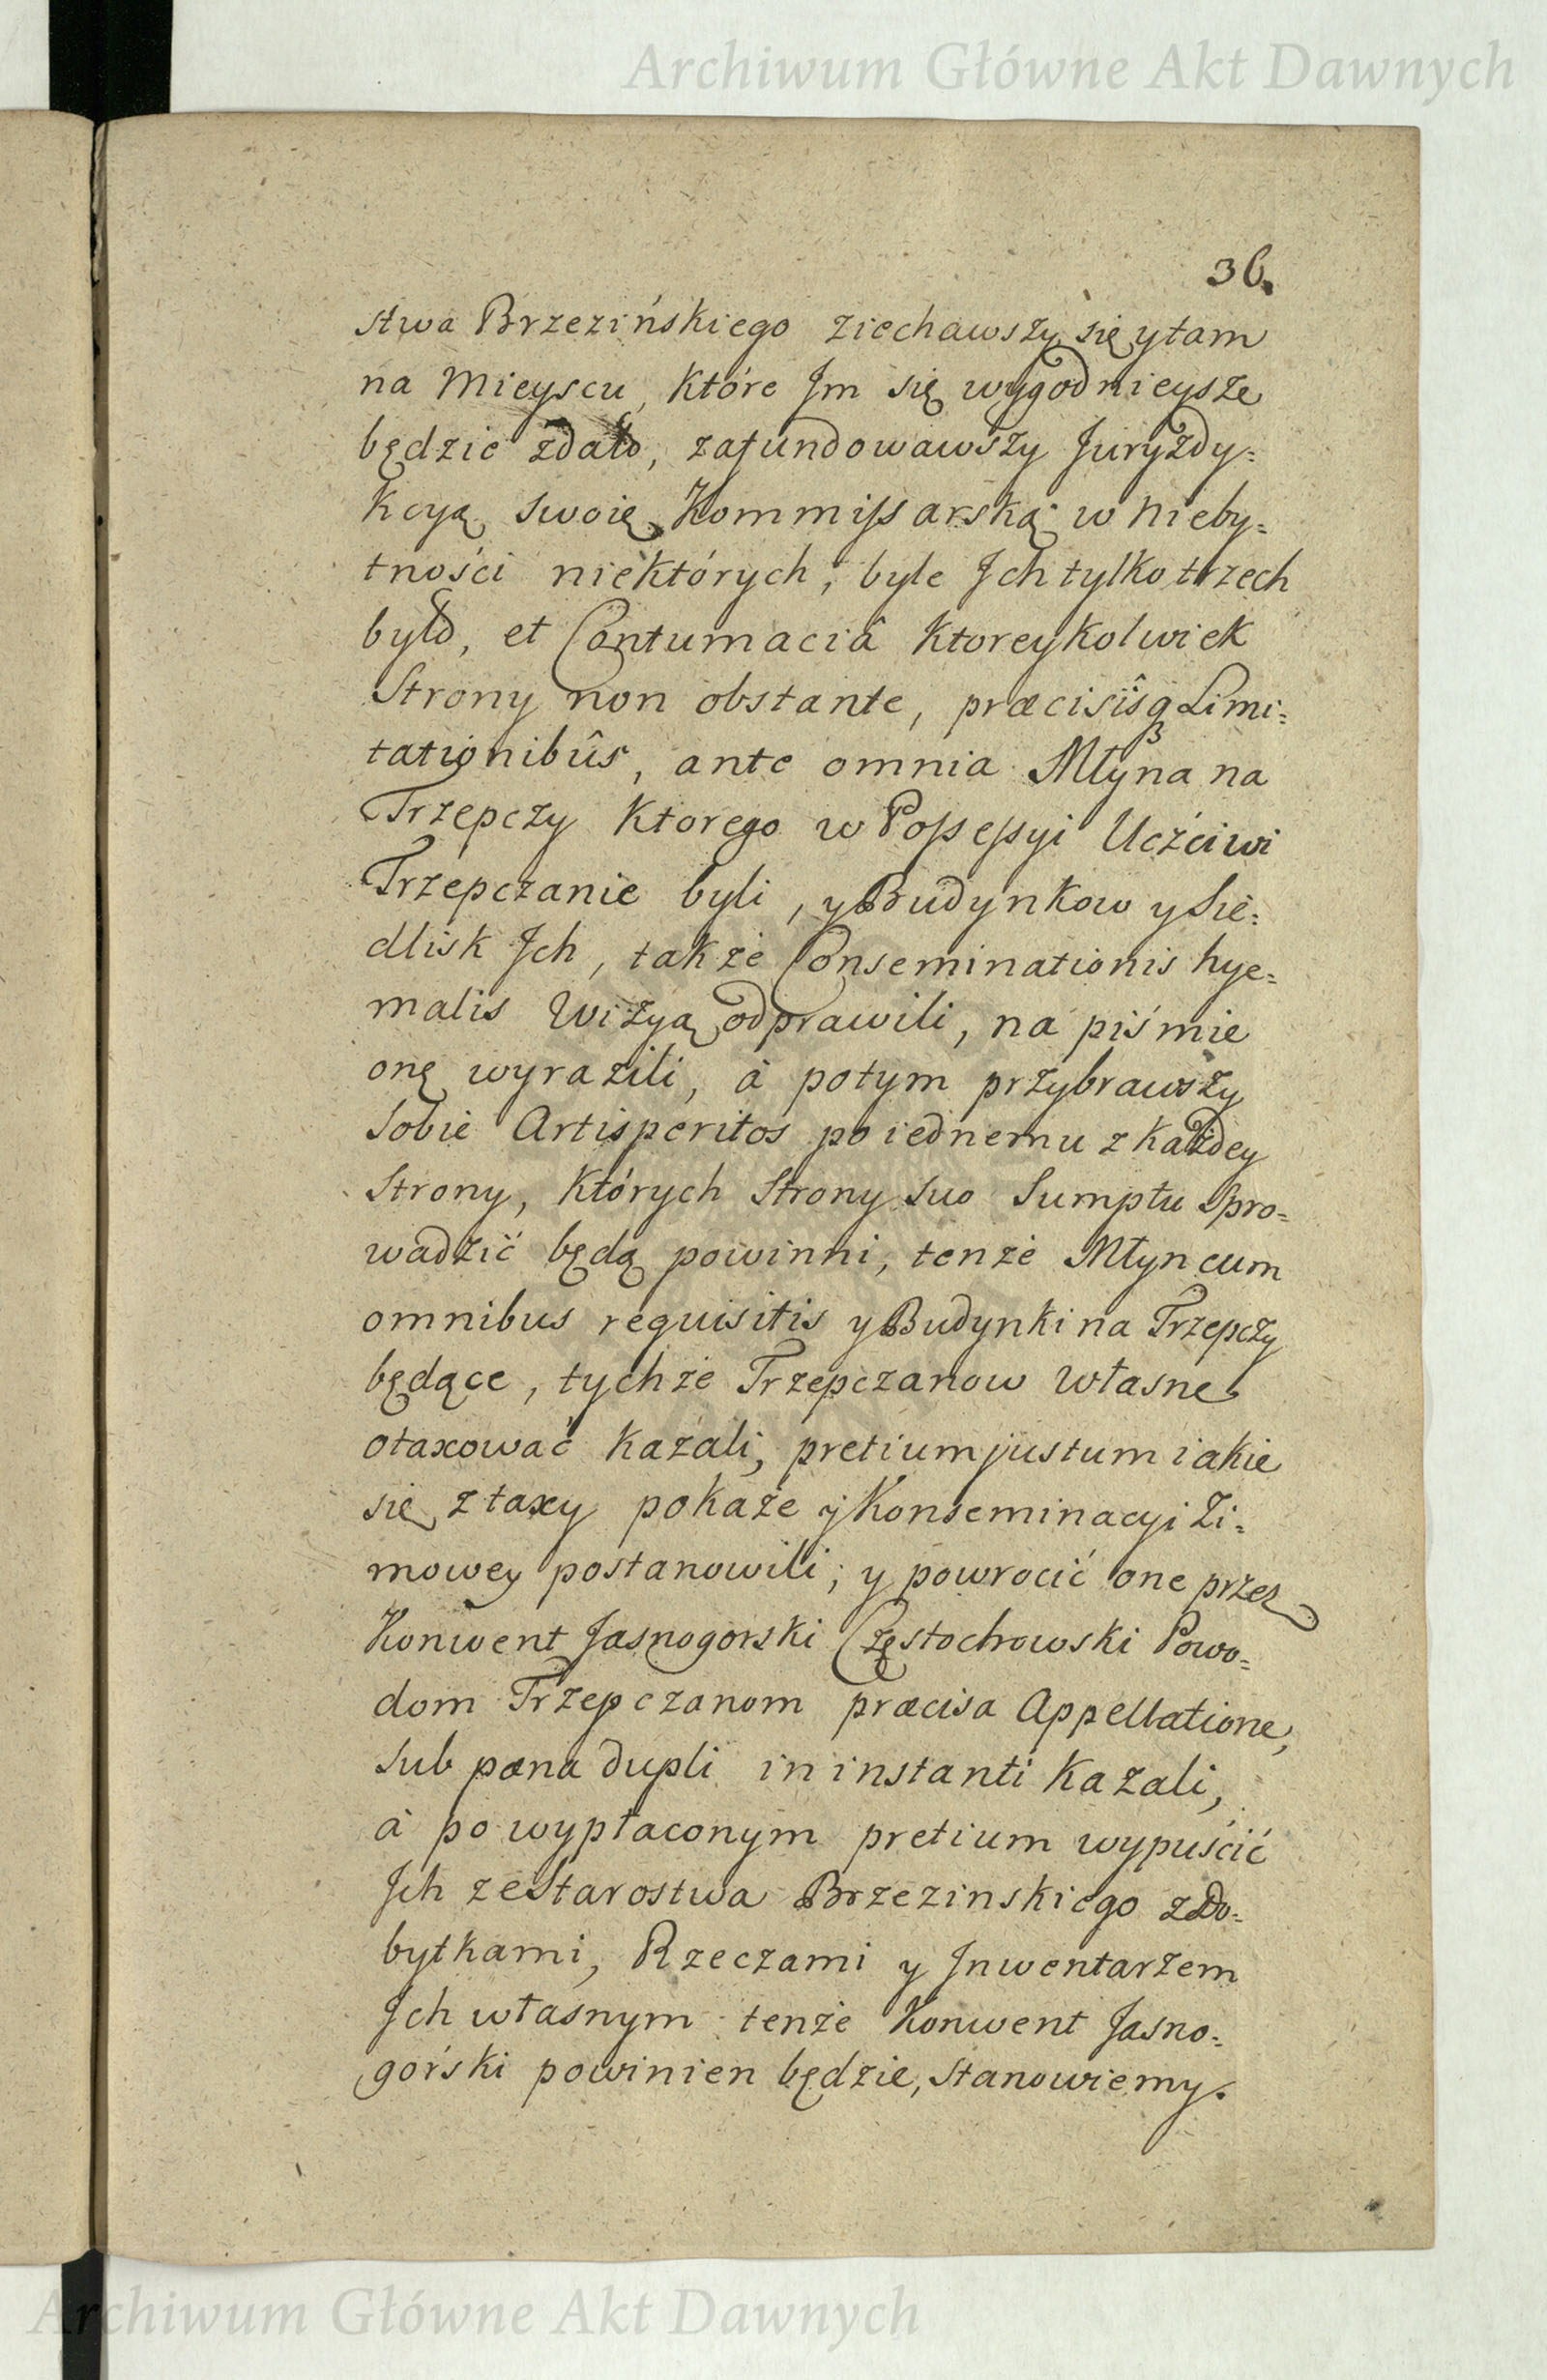 Archiwum Główne Akt Dawnych
36.
stwa Brzezińskiego ziechawszy się y tam
na Mieyscu, które Jm się wygodnieysze
będzie zdało, zafundowawszy Juryzdy=
kcyą swoię Kommissarską w nieby=
tności niektórych, byle Jch tylko trzech
było, et Contumaciâ ktoreykolwiek
Strony non obstante, præcisîsq₃ Limi=
tationibûs, ante omnia Młyna na
Trzepczy ktorego w Possessyi Uczciwi
Trzepczanie byli, y Budynkow y Sie=
dlisk Jch, także Conseminationis hye=
malis Wizyą odprawili, na piśmie
onę wyrazili, à potym przybrawszy
Sobie Artisperitos po iednemu z każdey
Strony, których Strony suo Sumptu Spro=
wadzić będą powinni, tenże Młyn cum
omnibus requisitis y Budynki na Trzepczy
będące, tychże Trzepczanow własne
otaxować kazali, pretium justum iakie
się z taxy pokaże y Konseminacyi Zi=
mowey postanowili; y powrocić one przez
Konwent Jasnogorski Częstochowski Powo=
dom Trzepczanom præcisa Appellatione,
Sub pæna dupli in instanti kazali,
à po wypłaconym pretium wypuścić
Jch ze Starostwa Brzezinskiego z Do=
bytkami, Rzeczami y Jnwentarzem
Jch własnym tenże Konwent Jasno=
górski powinien będzie, Stanowiemy.
Archiwum Główne Akt Dawnych